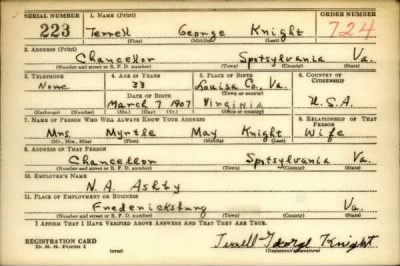 SERIAL NUMBER 1. NAME (Print) ORDER NUMBER
223 Terrell George Knight 724
(First) (Middle) (Last)
2. ADDRESS (Print)
Chancellor Spotsylvania Va.
(Number and street or R. F. D. number) (Town) (County) (State)
3. TELEPHONE 4. AGE IN YEARS 5. PLACE OF BIRTH 6. COUNTRY OF CITIZENSHIP
None 33 Louisa Co., Va.
DATE OF BIRTH (Town or county)
March 7 1907 Virginia U.S.A.
(Exchange) (Number) (Mo.) (Day) (Yr.) (State or country)
7. NAME OF PERSON WHO WILL ALWAYS KNOW YOUR ADDRESS 8. RELATIONSHIP OF THAT PERSON
Mrs. Myrtle May Knight Wife
(Mr., Mrs., Miss) (First) (Middle) (Last)
9. ADDRESS OF THAT PERSON
Chancellor Spotsylvania Va.
(Number and street or R. F. D. number) (Town) (County) (State)
10. EMPLOYER'S NAME
N. A. Ashby
11. PLACE OF EMPLOYMENT OR BUSINESS
Fredericksburg Va.
(Number and street or R. F. D. number) (Town) (County) (State)
I AFFIRM THAT I HAVE VERIFIED ABOVE ANSWERS AND THAT THEY ARE TRUE.
REGISTRATION CARD
D. S. S. Form 1 Terrell George Knight